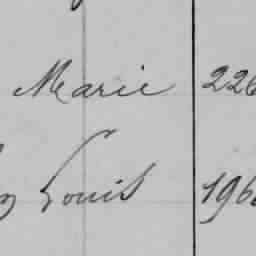 Marie 226
Louis 196